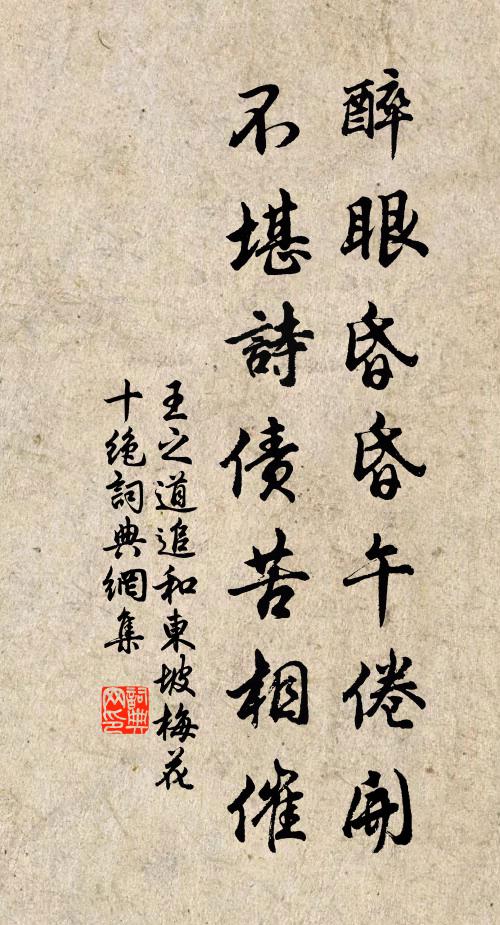 醉眼昏昏午倦開
不堪詩債苦相催
王之道追和東坡梅花
十絶詞典網集
詞典
网印